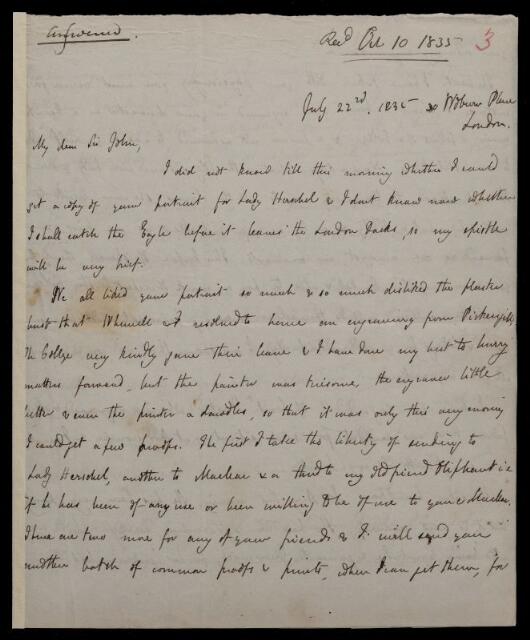 Answered.
Recd Oct 10 1835
3
July 22nd. 1835 Woburn Place
London.
My dear Sir John,
I did not know till this morning whether I could
get a copy of your portrait for Lady Herschel & I dont know now whether
I shall catch the Eagle before it leaves the London Docks, so my epistle
will be very brief.
We all liked your portrait so much & so much disliked the plaster
bust that Whewell & I resolved to have an engraving from Pickersgill.
The College very kindly gave their leave & I have done my best to hurry
matters forward, but the painter was tiresome, the engraver little
better & even the printer a dawdler, so that it was only this very morning
I could get a few proofs. The first I take the liberty of sending to
Lady Herschel, another to Maclear & a third to my old friend Oliphant i.e.
if he has been of any use or been willing to be of use to you & Maclear.
There are two more for any of your friends & I will send you
another batch of common proofs & prints, when I can get them, for